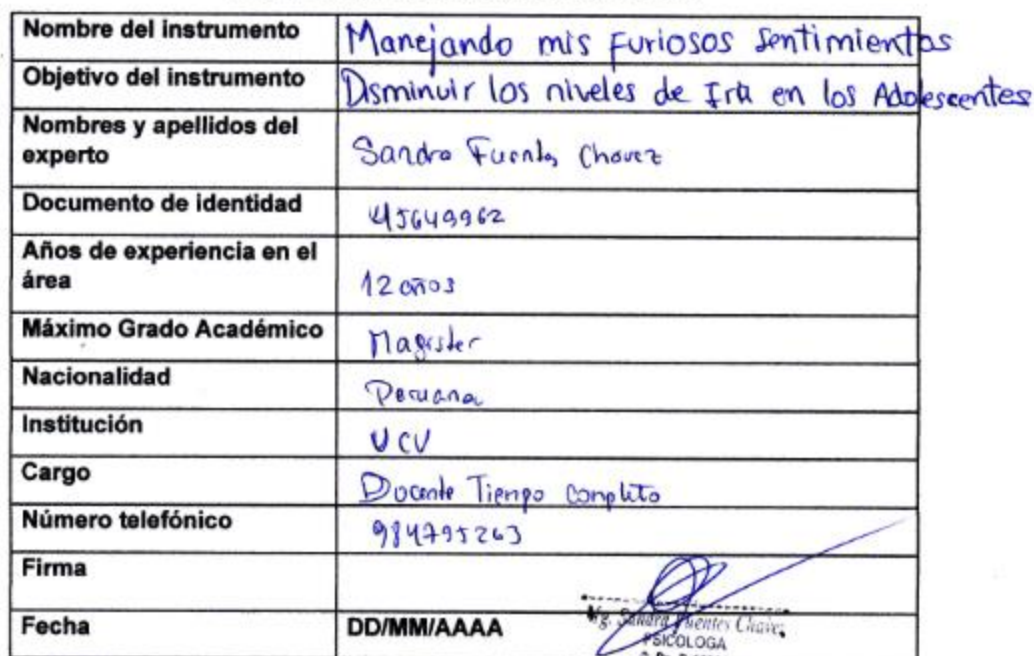 Nombre del instrumento Manejando mis furiosos sentimientos
Objetivo del instrumento Disminuir los niveles de Ira en los Adolescentes
Nombres y apellidos del
experto Sandra Fuentes Chavez
Documento de identidad 45649962
Años de experiencia en el
área 12 años
Máximo Grado Académico Magister
Nacionalidad Peruana
Institución UCV
Cargo Docente Tiempo Completo
Número telefónico 984795263
Firma
Mg. Sandra Fuentes Chavez
Fecha DD/MM/AAAA
PSICOLOGA